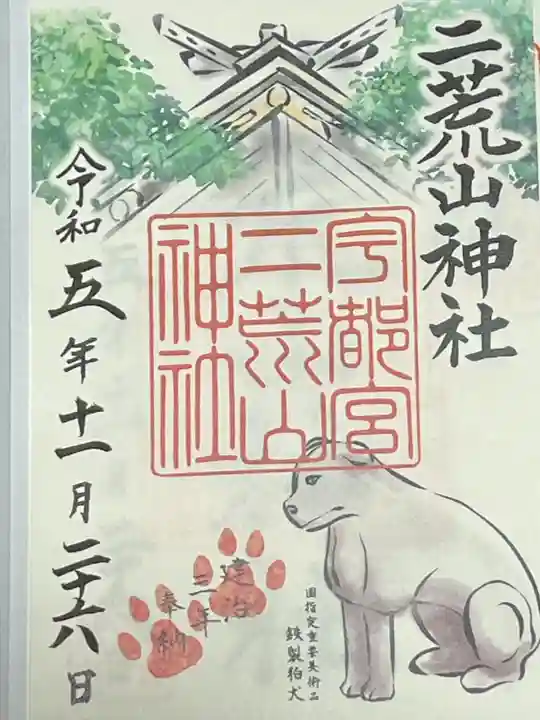 二荒山神社
宇都宮
二荒山
神社
令和五年十一月二十六日
建治
三年
奉納
国指定重要美術品
鉄製狛犬